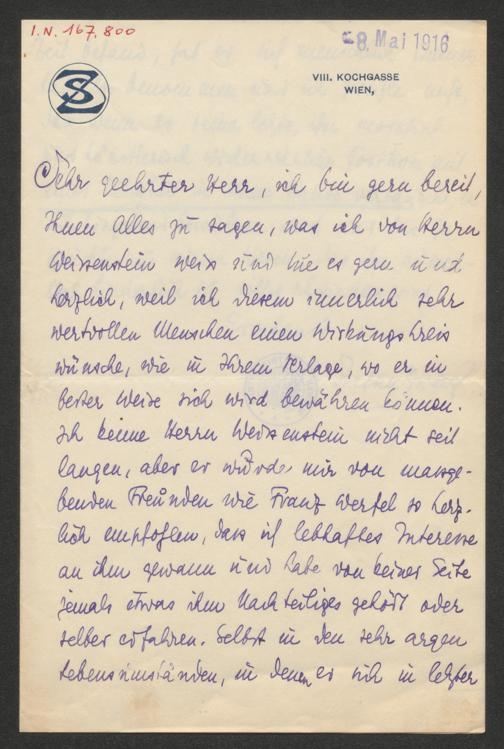 I.N. 167.800
-8. Mai 1916
SZ
VIII. KOCHGASSE
WIEN,
Sehr geehrter Herr, ich bin gern bereit,
Ihnen Alles zu sagen, was ich von Herrn
Weissenstein weis und tue es gern und
herzlich, weil ich diesem innerlich sehr
wertvollen Menschen einen Wirkungskreis
wünsche, wie in Ihrem Verlage, wo er in
bester Weise sich wird bewähren können.
Ich kenne Herrn Weissenstein nicht seit
langen, aber er wurde mir von massge-
benden Freunden wie Franz Werfel so herz-
lich empfohlen, dass ich lebhaftes Interesse
an ihm gewann und habe von keiner Seite
jemals etwas ihm Nachteiliges gehört oder
selber erfahren. Selbst in den sehr argen
Lebensumständen, in denen er sich in letzter